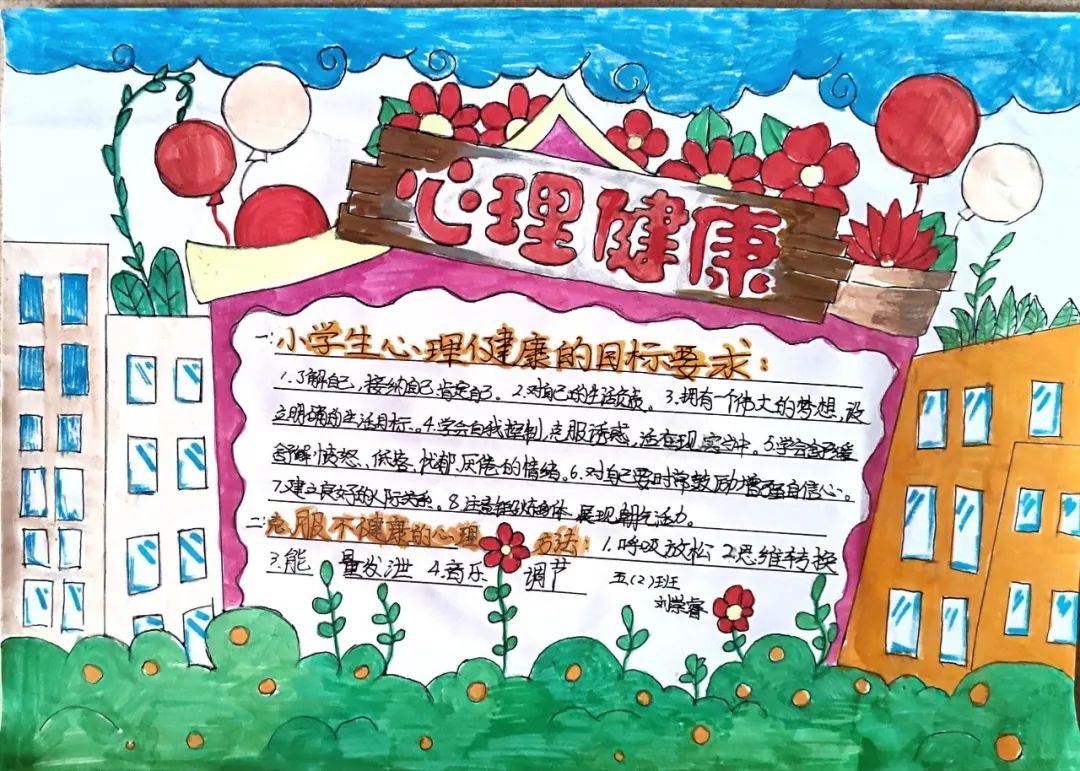 心理健康
一:小学生心理健康的目标要求:
1.了解自己,接纳自己肯定自己。2.对自己的生活负责。3.拥有一个伟大的梦想,设
立明确的生活目标。4.学会自我控制,克服诱惑,活在现实中。5.学会
舒解愤怒、低落、忧郁、厌倦的情绪。6.对自己要时常鼓励增强自信心。
7.建立良好的人际关系。8.注意锻炼身体,展现朝气活力。
二:克服不健康的心理 方法:1.呼吸放松 2.思维转换
3.能 量发泄 4.音乐 调节
五(2)班
刘崇睿